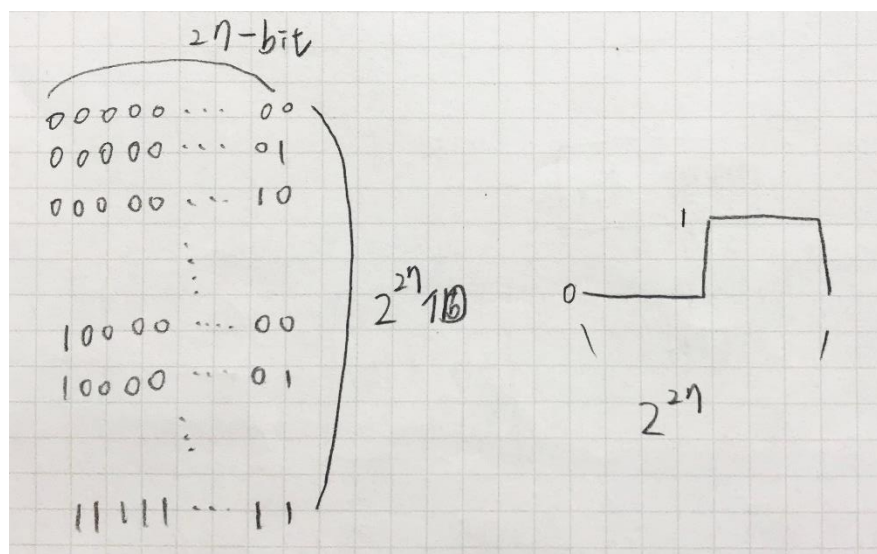 2n-bit
00000 ... 00
00000 ... 01
00000 ... 10
10000 .... 00
10000 ... 01
11111 ... 11
2^2n 個
1
0
2^2n